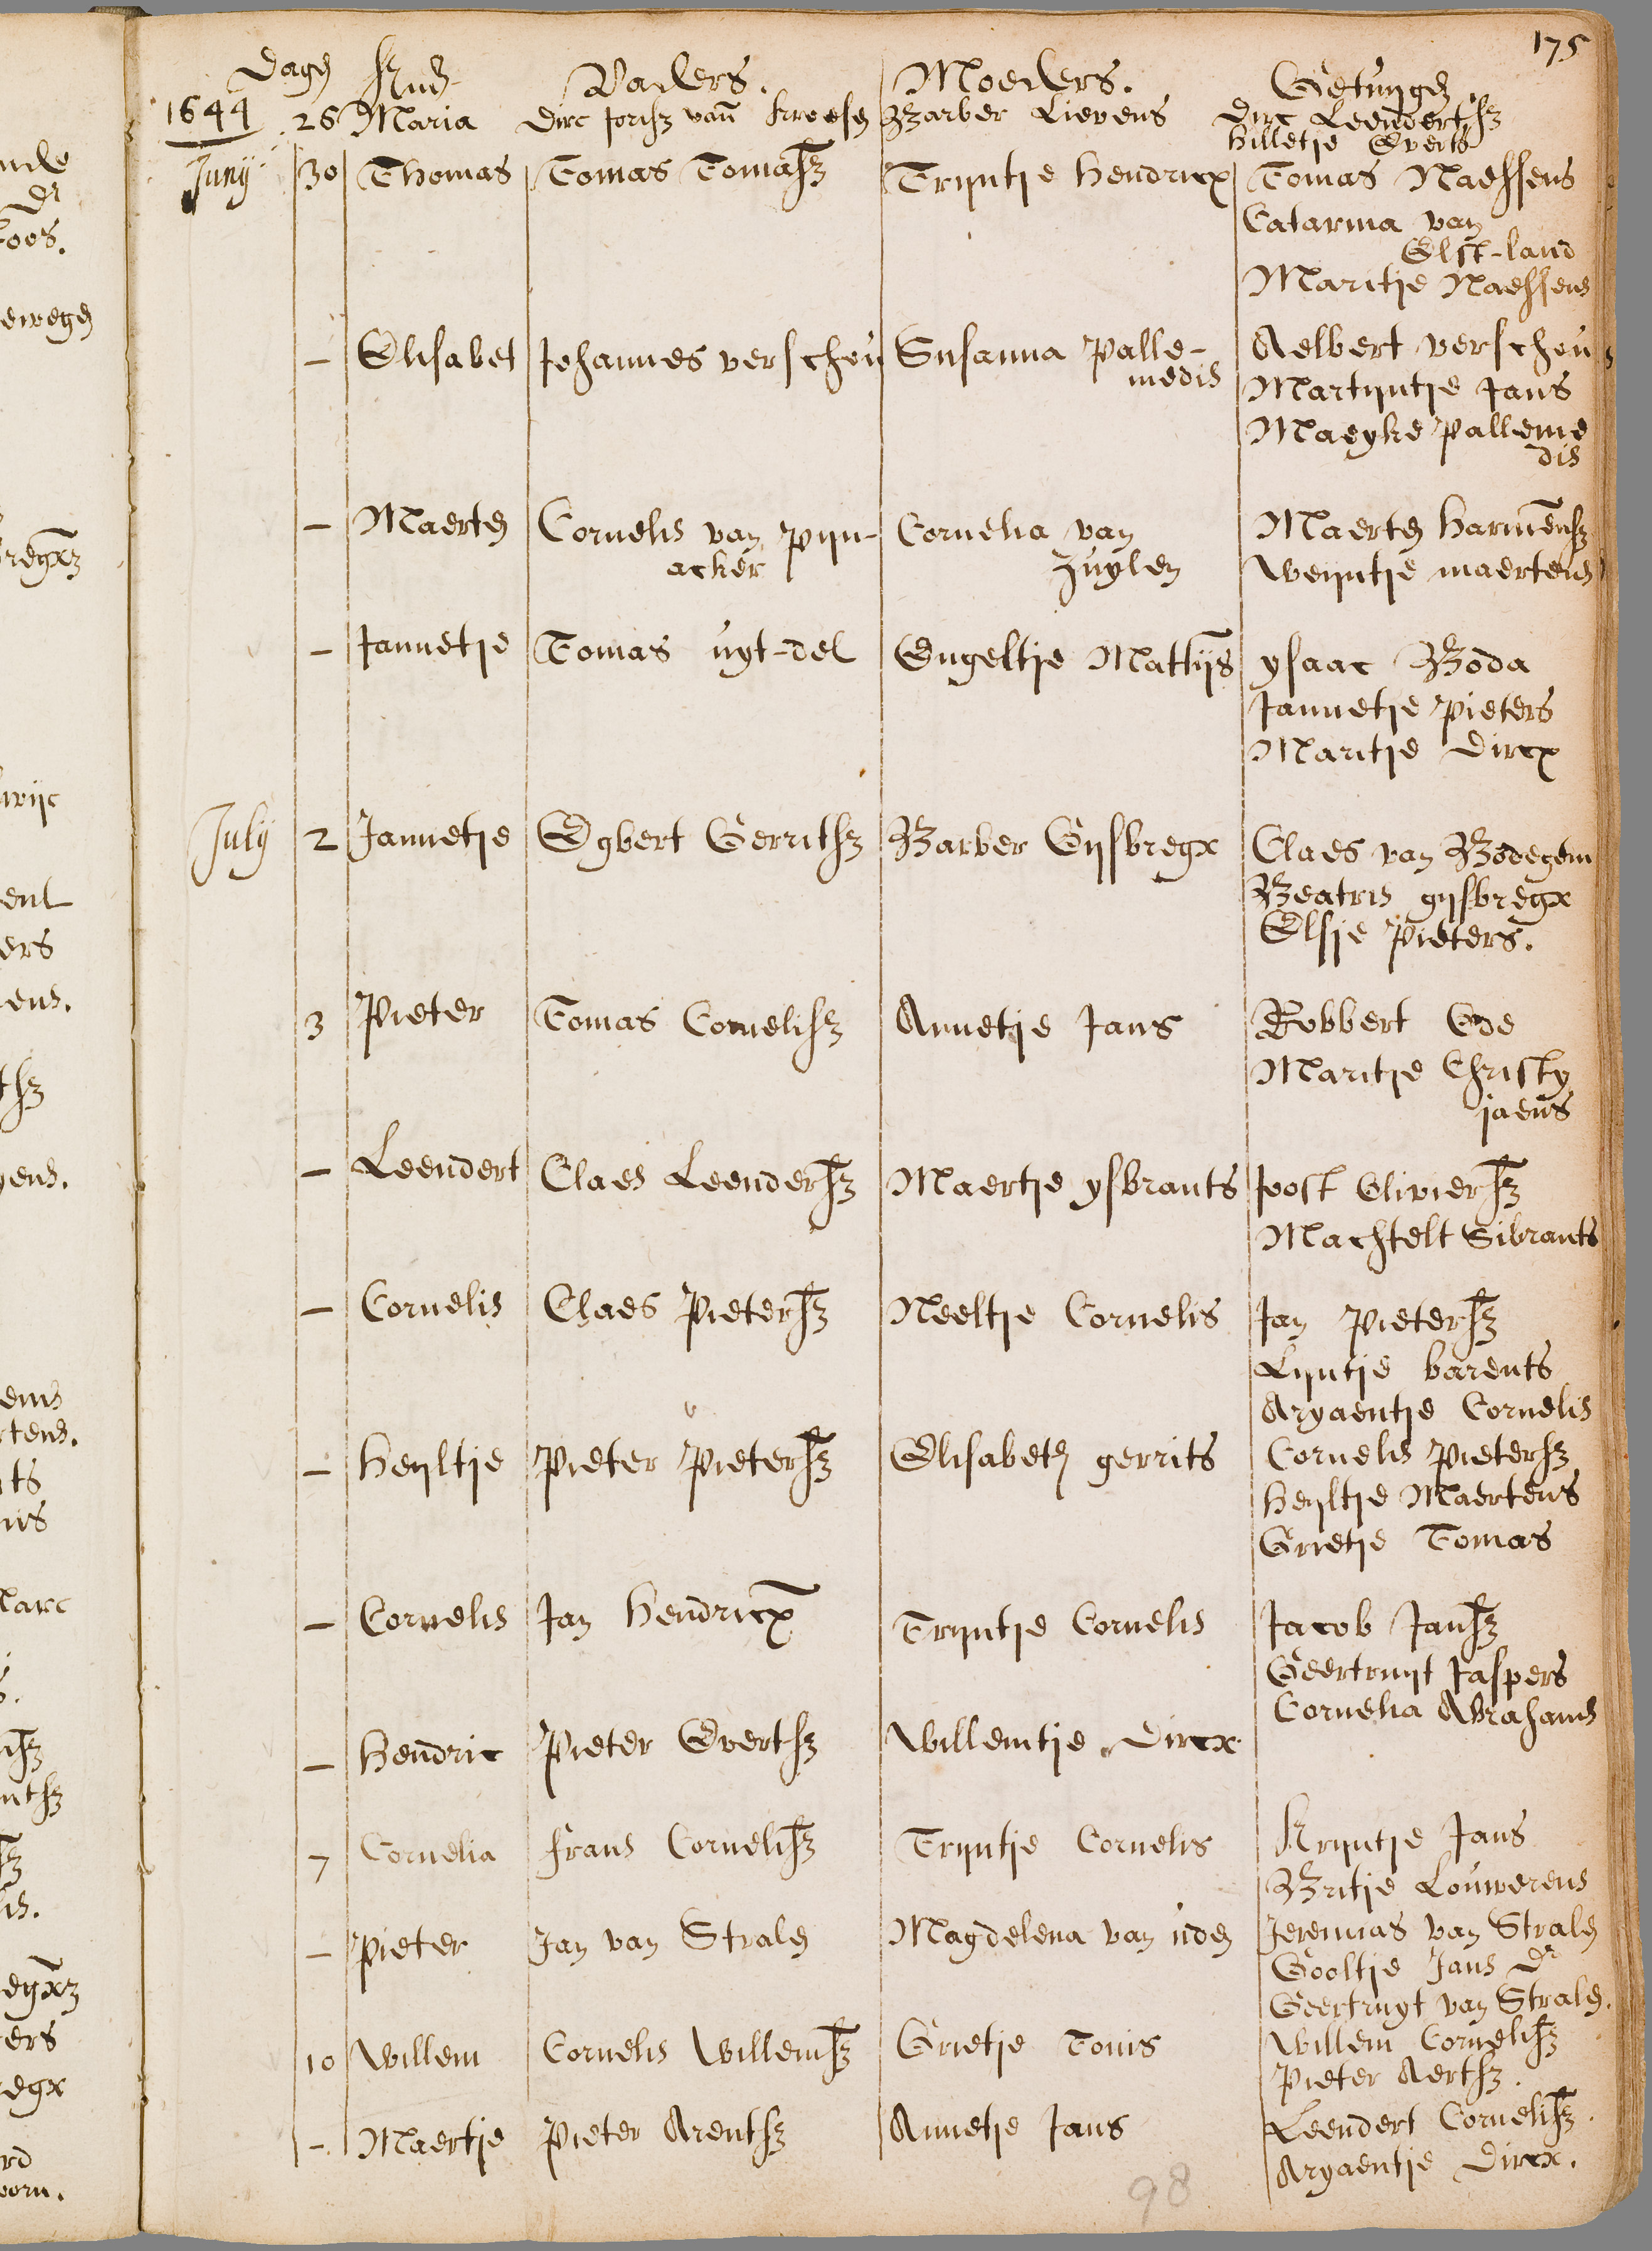 175
Dagē Kind. Vaders. Moeders. Getuijgē.
1644 26 Maria Dirc Jorisz vañ Kroesē Barber Lievens Dirc Leendertsz
Hilletje Everts
Junij 30 Thomas Tomas Tomasz Trijntje Hendricx Tomas Naessens
Catarina van
Elst-land
Maritje Naessens
– Elisabet Johannes verscheu Susanna Palle- Aelbert verscheu
medis Martijntje Jans
Maeyke Palleme
dis
– Maertē Cornelis van Pijn- Cornelia van Maertē Harmensz
acker Zuylen Weijntje maertens
– Jannetje Tomas uyt-del Engeltje Mattijs ysaac Boda
Jannetje Pieters
Maritje Dircx
July 2 Jannetje Egbert Gerritsz Barber Gijsbregx Claes van Bodegem
Beatris gijsbregx
Elsje Pieters.
3 Pieter Tomas Cornelisz Annetje Jans Robbert Ede
Maritje Christy
jaens
– Leendert Claes Leendersz Maertje ysbrants Joost Oliviersz
Machtelt Sibrants
– Cornelis Claes Pietersz Neeltje Cornelis Jan Pietersz
Lijntje barents
Aryaentje Cornelis
– Heyltje Pieter Pietersz Elisabeth gerrits Cornelis Pietersz
Heyltje Maertens
Grietje Tomas
– Cornelis Jan Hendricx Trijntje Cornelis Jacob Jansz
Geertruyt Jaspers
Cornelia Abrahams
– Hendric Pieter Evertsz Willemtje Dircx
7 Cornelia frans Cornelisz Trijntje Cornelis Krijntje Jans
Britje Louwerens
– Pieter Jan van Stralē Magdelena van udē Jeremias van Stralē
Gooltje Jans Dr
Geertruyt van Stralē.
10 Willem Cornelis Willemsz Grietje Tonis Willem Cornelisz
Pieter Aertsz.
– Maertje Pieter Arentsz Annetje Jans Leendert Cornelisz.
Aryaentje Dircx.
98